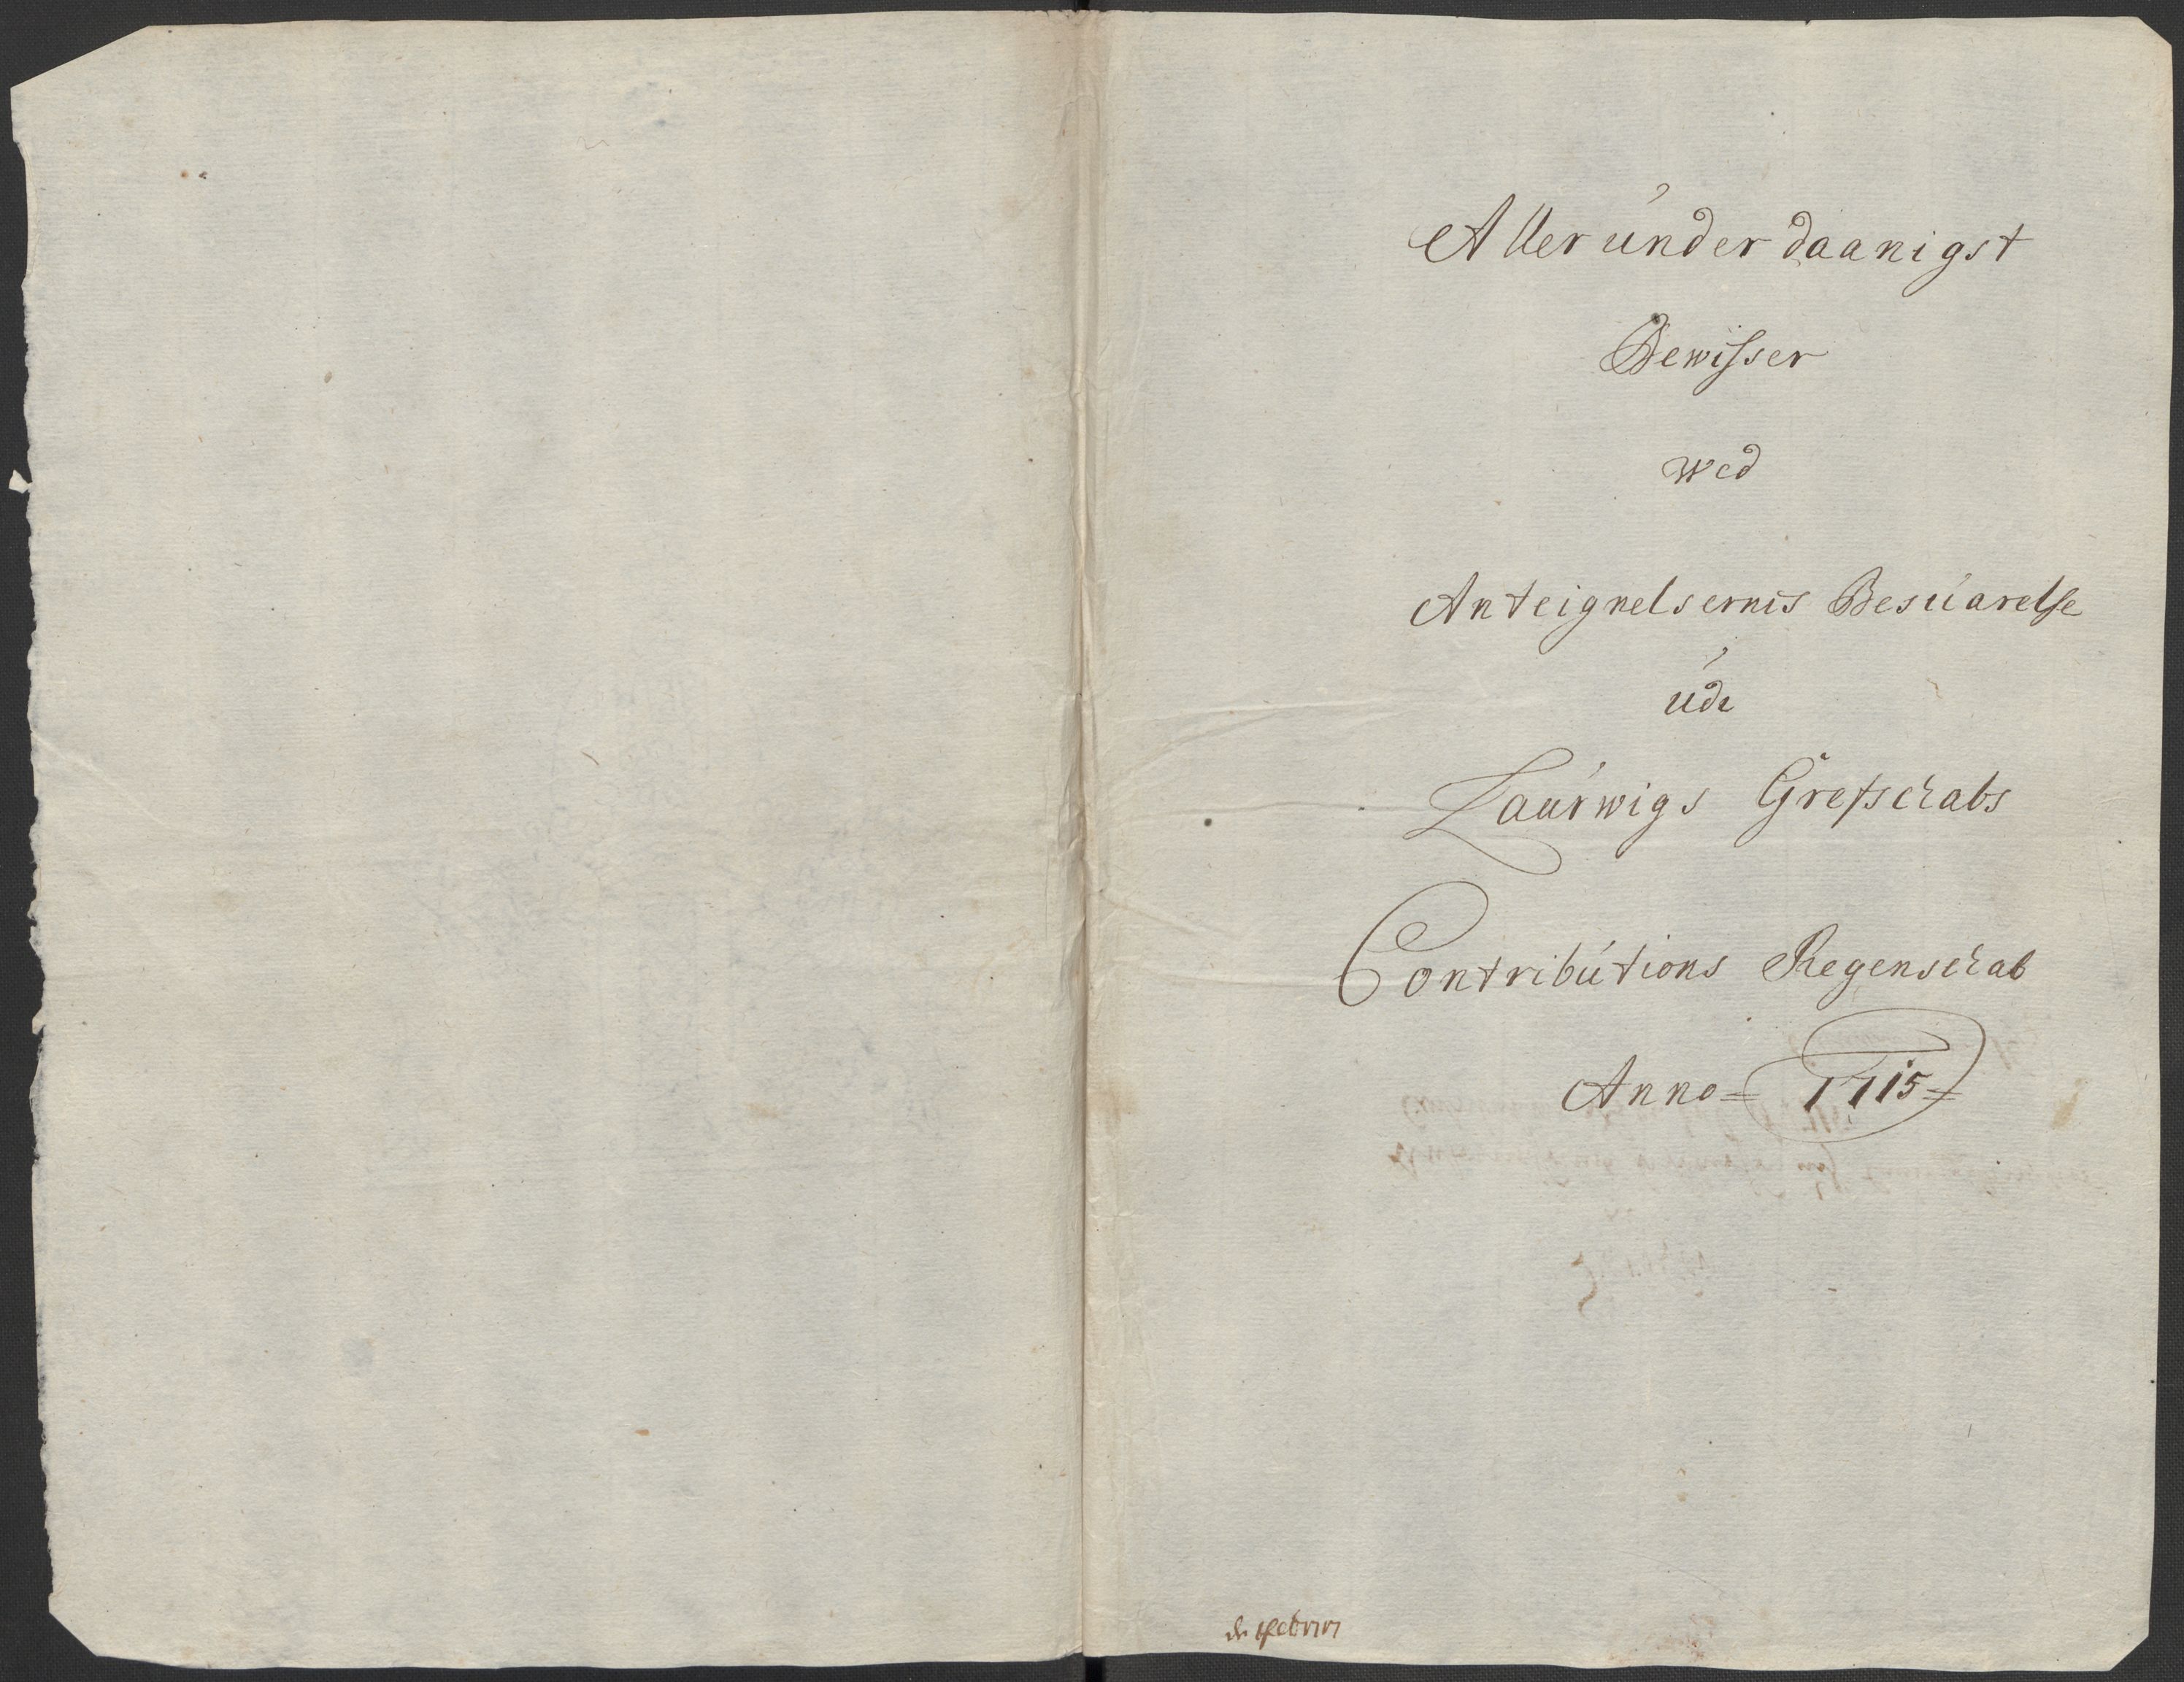 Allerúnderdaanigst
Bewisser
wed
Anteignelsernis Besúarelse
údi
Laúrwigs Grefschabs
Contribútions Regenschab
Anno = 1715 =